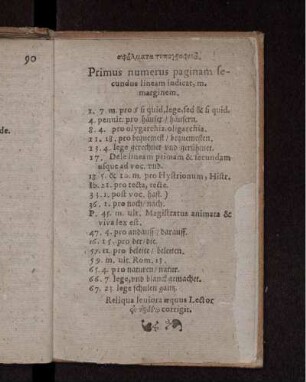 90
de.
σφάλματα τυπογραφικά.
Primus numerus paginam se-
cundus lineam indicat, m.
marginem.
2. 7. m. pro si quid, lege, sed & si quid.
4. penult. pro häusig/ häusern.
8. 4. pro olygarchia, oligarchia.
21. 18. pro bequemest/ bequemesten.
25. 4. lege gerechnet und
17. Dele lineam primam & secundam
usque ad voc. und.
12. 5. & 12. m. pro Hystrionum, Histr.
21. pro recta, recte.
33. 1. post voc. hast.)
36. 1. pro noch/ nach.
P. 45. m. ult. Magistratus animata &
viva lex est.
47. 4. pro andauff/ darauff.
16. 15. pro der/ die.
57. 12. pro beleite/ beleiten.
59. m. ult. Rom. 13.
65. 4. pro naturen/ natur.
66. 7. lege, und blanck gemachet.
67. 23 lege schulen gantz.
Reliqua leviora æquus Lector
corriget.